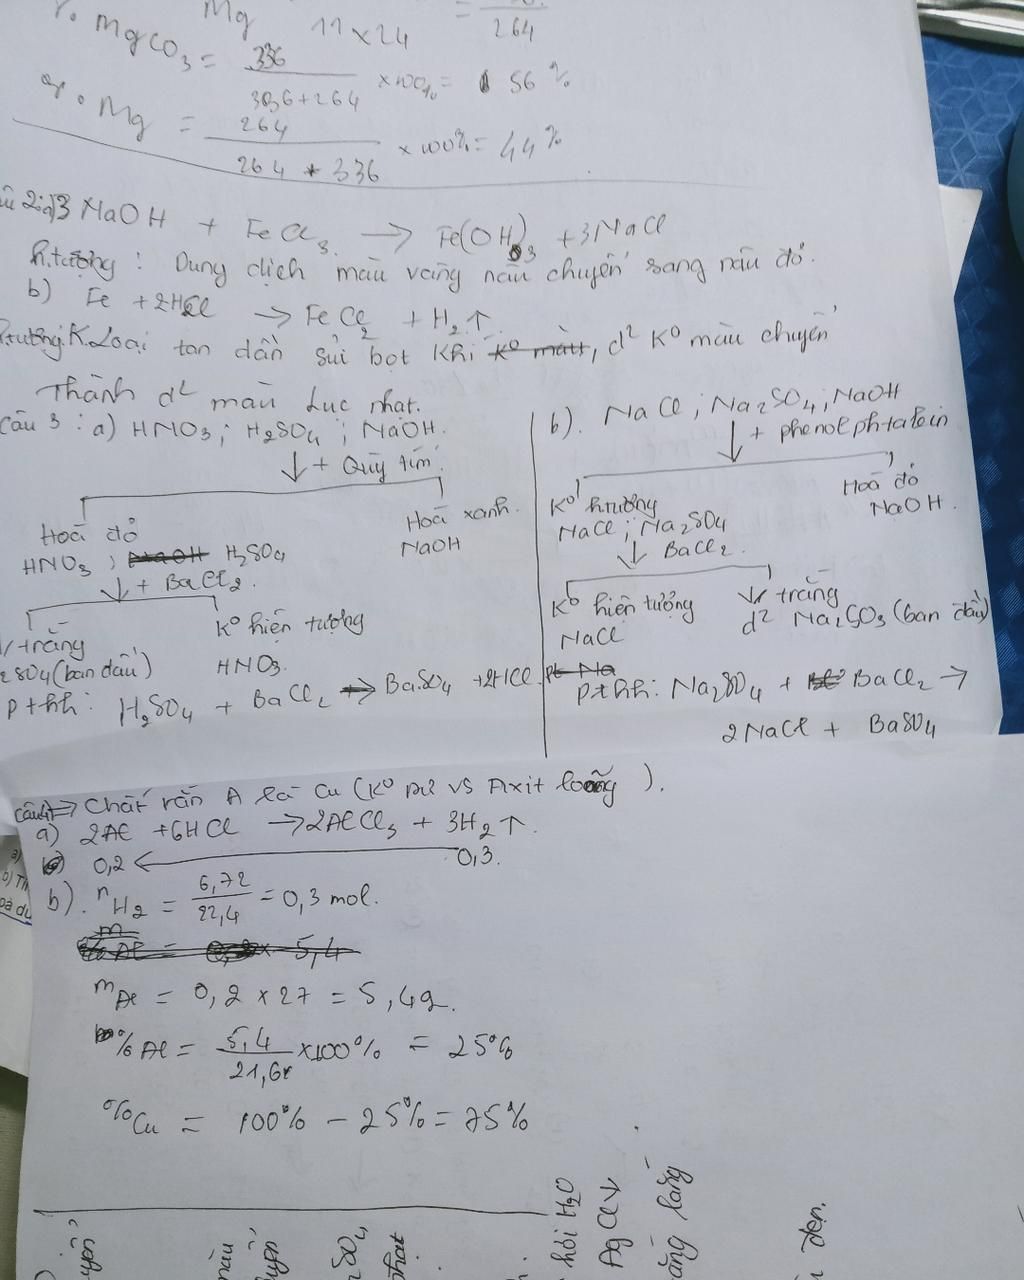 Mg 11x24 = 264
% MgCO3 = 336 / 336+264 x100% = 56 %
% Mg = 264 / 264 + 336 x 100% = 44%
2:a) 3 NaOH + FeCl3 → Fe(OH)3 + 3NaCl
h.tượng : Dung dịch màu vàng nâu chuyển sang nâu đỏ.
b) Fe + 2HCl → FeCl2 + H2↑
tượng: K.Loại tan dần sủi bọt khí, d² K° màu chuyển
thành d² màu lục nhạt.
Câu 3 : a) HNO3 ; H2SO4 ; NaOH.
↓ + Quỳ tím
Hoá đỏ
HNO3 ; H2SO4
Hoá xanh.
NaOH
↓ + BaCl2.
↓ trắng
2SO4 (ban đầu)
K° hiện tượng
HNO3.
pthh : H2SO4 + BaCl2 → BaSO4 + 2HCl
b). NaCl ; Na2SO4 ; NaOH
↓ + phenolphtalein
K° hường
NaCl ; Na2SO4
Hoá đỏ
NaOH.
↓ BaCl2.
K° hiện tượng
NaCl
↓ trắng
d² Na2SO3 (ban đầu)
pthh: Na2SO4 + BaCl2 →
2NaCl + BaSO4
Câu 4 => Chất rắn A là Cu (K° pứ vs Axit loãng ).
a) 2Al + 6HCl → 2AlCl3 + 3H2↑.
0,2 ← 0,3.
b). nH2 = 6,72 / 22,4 = 0,3 mol.
mAl = 0,2 x 27 = 5,4g.
% Al = 5,4 / 21,6 x100% = 25%
%Cu = 100% - 25% = 75%
hỏi H2O
AgCl↓
lắng
đen.
màu
SO4
nhạt